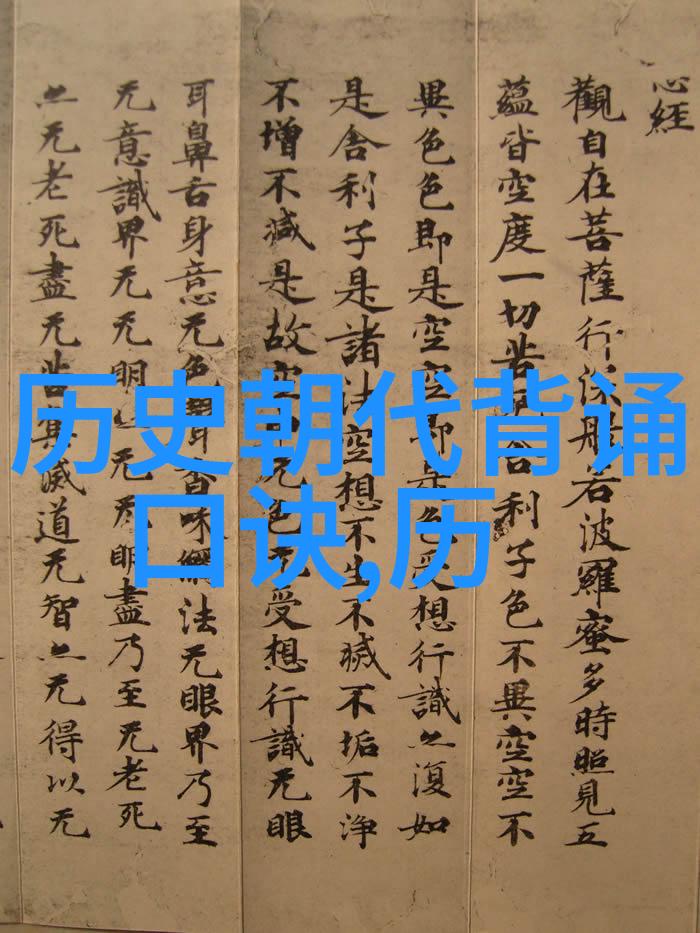 历史朝代背诵
口诀,历
心經
觀自在菩薩行深般若波羅蜜多時照見五
蘊皆空度一切苦舍利子色不異空空不
異色色即是空空即是色受想行識亦復如
是舍利子是諸法空想不生不滅不垢不淨
不增不減是故空无色无受想行識无眼
耳鼻舌身意无色聲香味觸法无眼界乃至
无意識界无无明亦无无明盡乃至无老死
亦无老死盡无苦集滅道无智亦无得以无